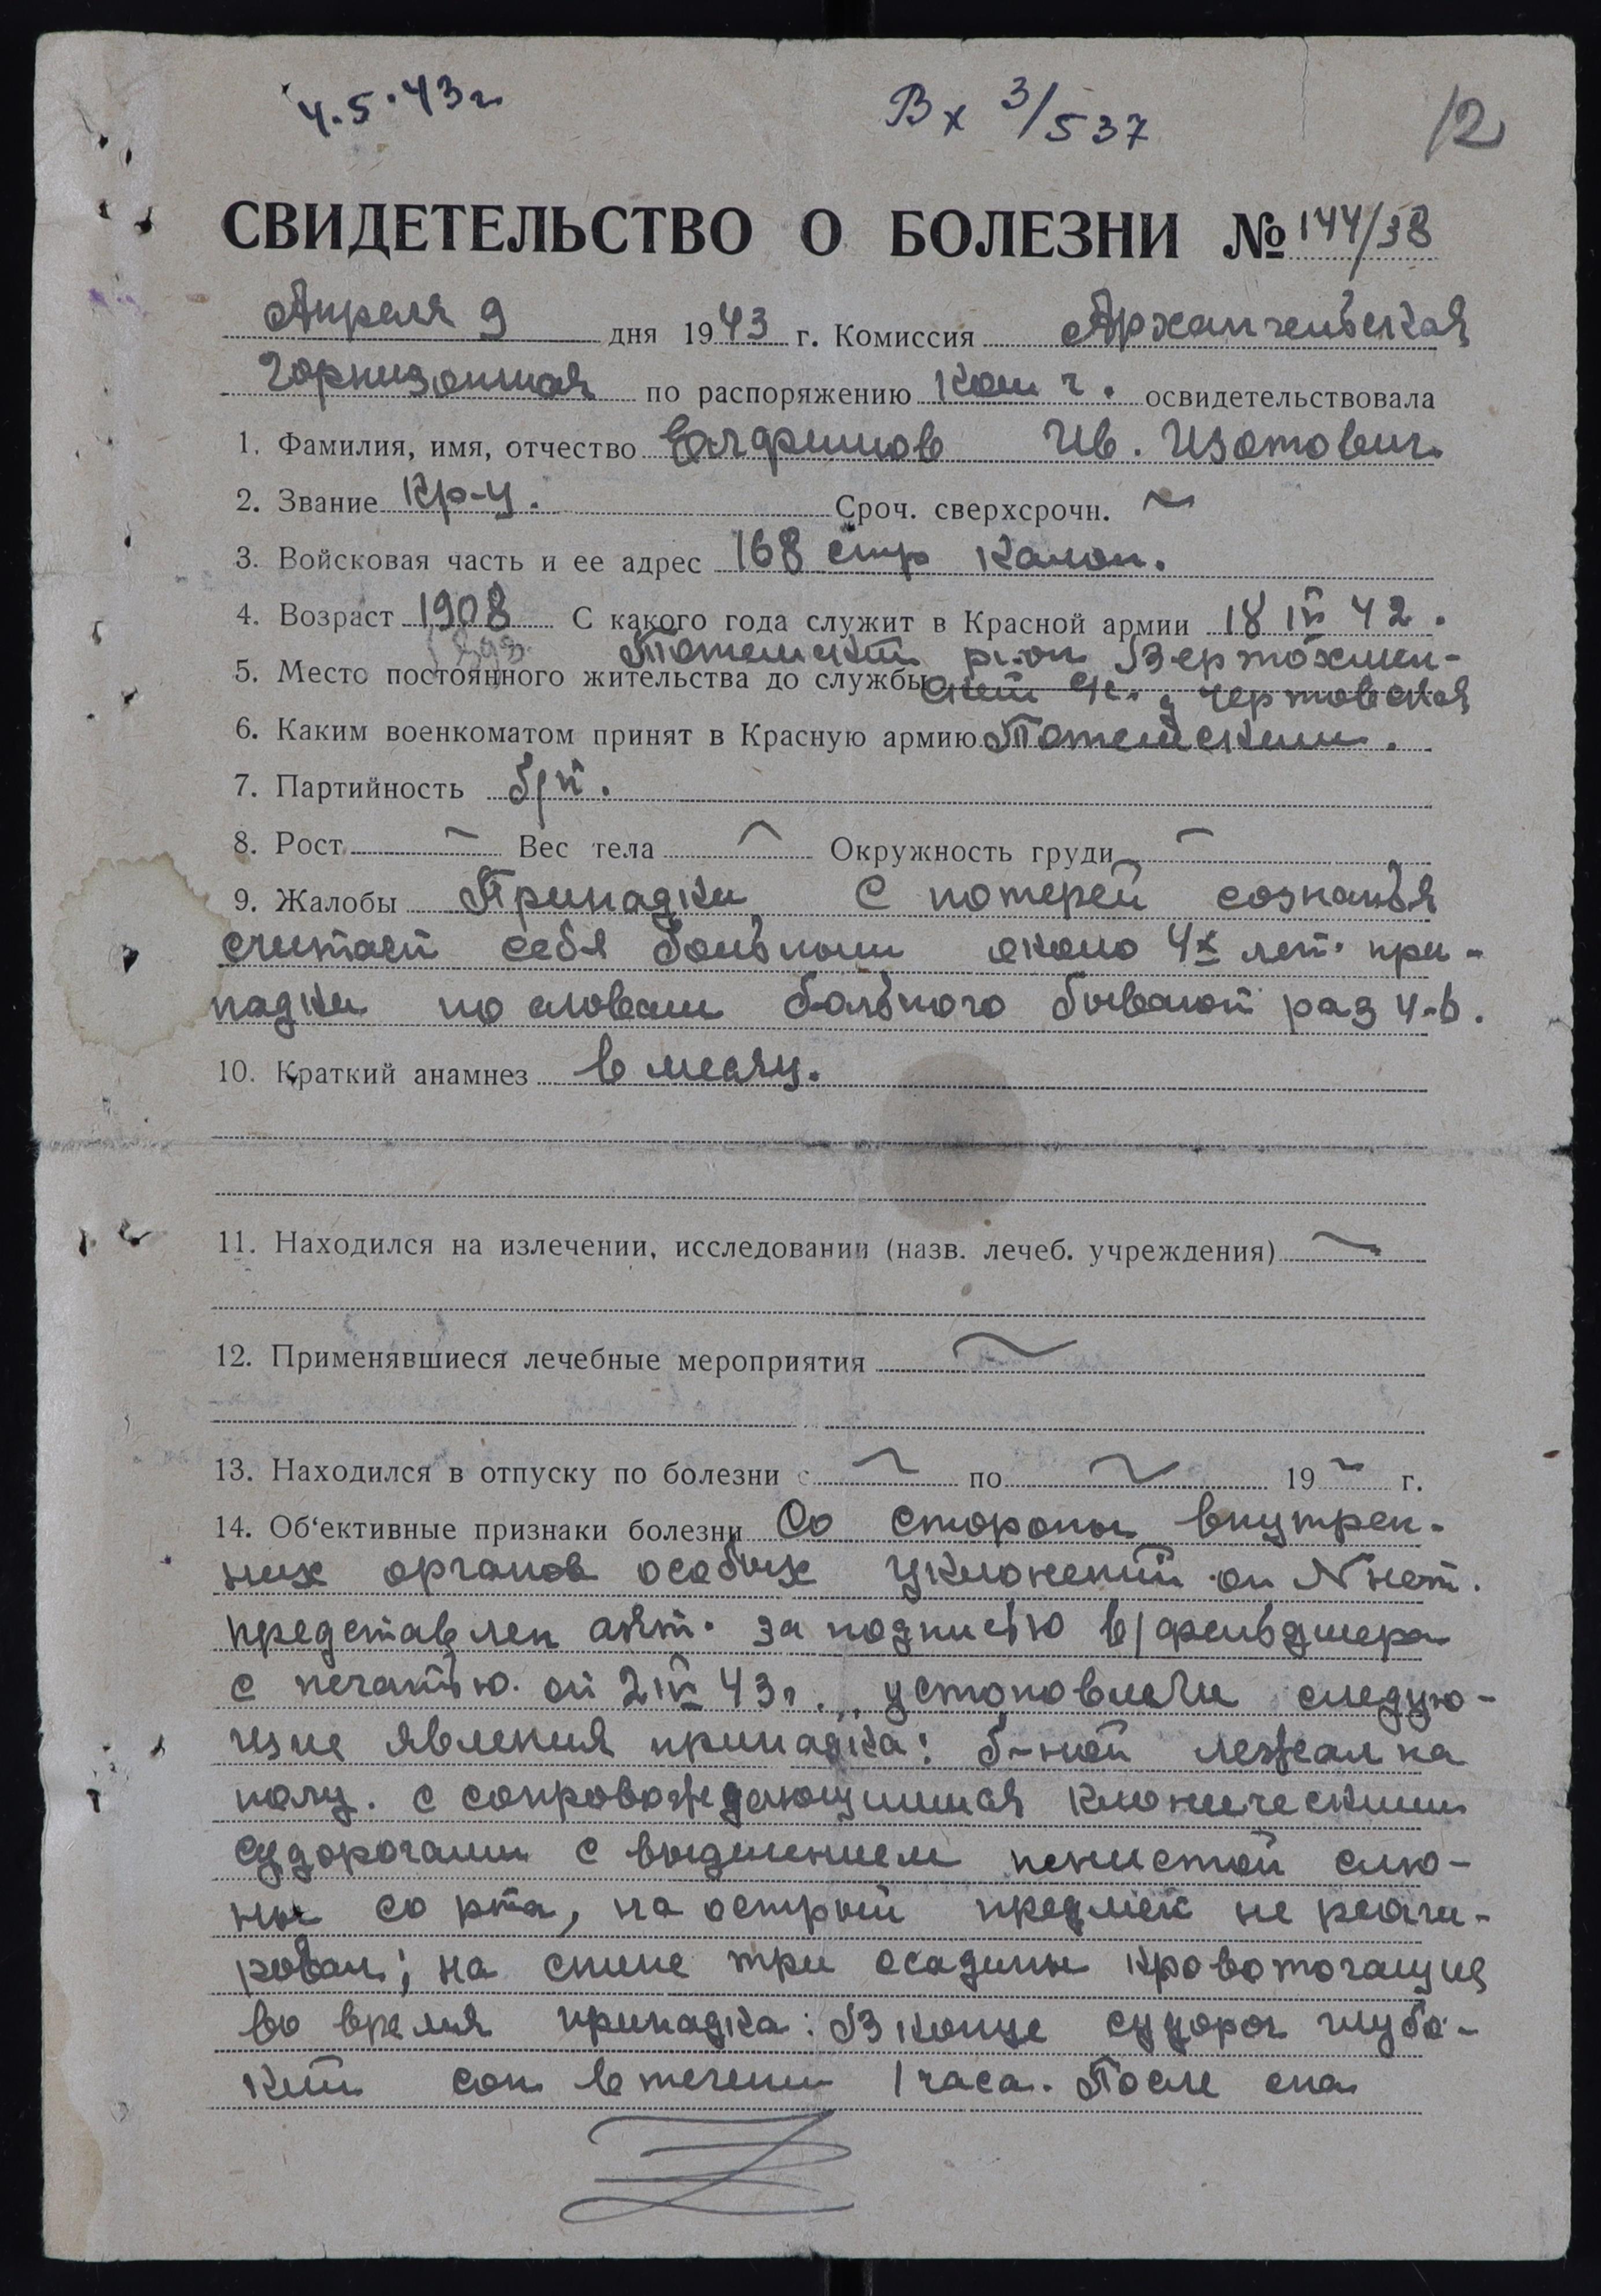 4.5.43г Вх 3/537 12
СВИДЕТЕЛЬСТВО О БОЛЕЗНИ № 144/38
Апреля 9 дня 1943 г. Комиссия Архангельская
Гарнизонная по распоряжению Ком ч. освидетельствовала
1. Фамилия, имя, отчество Ив. Изотович
2. Звание Кр-ц. Сроч. сверхсрочн. ~
3. Войсковая часть и ее адрес 168 стр
4. Возраст 1908 С какого года служит в Красной армии 18 IV 42.
Тотемский р-он
5. Место постоянного жительства до службы
6. Каким военкоматом принят в Красную армию Тотемским.
7. Партийность б/п.
8. Рост Вес тела Окружность груди
9. Жалобы Припадки с потерей сознанья
считает себя больным около 4х лет. при-
падки по словам больного бывают раз 4-6.
10. Краткий анамнез в месяц.
11. Находился на излечении, исследовании (назв. лечеб. учреждения)
12. Применявшиеся лечебные мероприятия
13. Находился в отпуску по болезни с по 19 г.
14. Об‘ективные признаки болезни Со стороны внутрен-
них органов особых уклонений от N нет.
представлен акт. за подписью в/фельдшера
с печатью. от 2 IV 43г. установлены следую-
щие явления припадка: б-ной лежал на
полу. с сопровождающимися клоническими
судорогами с выделением пенистой слю-
ны со рта, на острый предмет не реаги-
ровал; на спине три ссадины кровоточащие
во время припадка: В конце судорог глубо-
кий сон в течении 1 часа. После сна